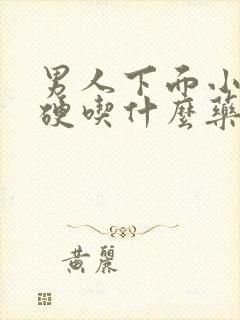 男人下而小
硬喫什麼藥
黃麗